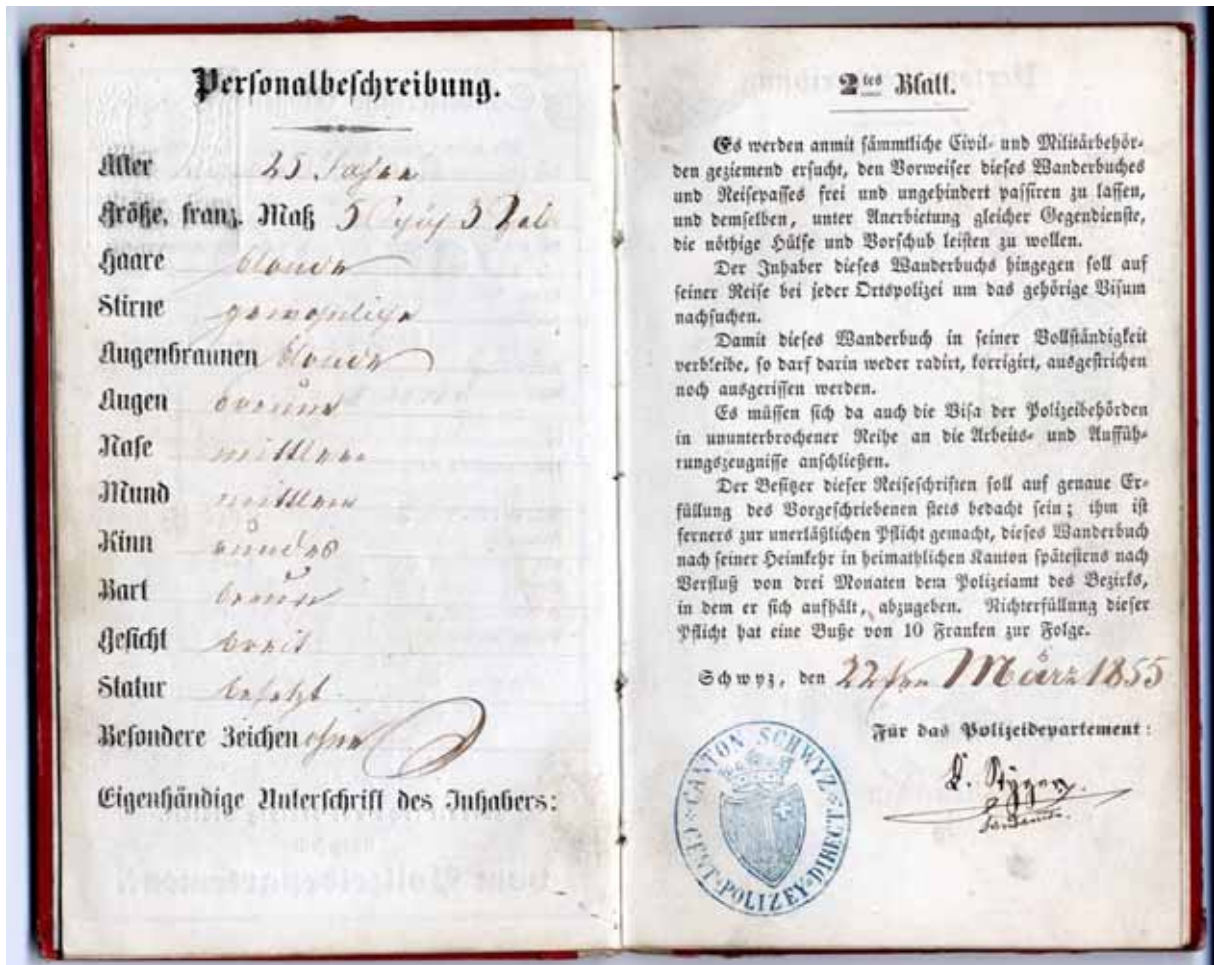 Personalbeschreibung.
Alter 25 Jahre
Größe, franz. Maß 5 Schuh 3 Zoll
Haare blonde
Stirne gewohnliche
Augenbraunen blonde
Augen braune
Nase mittlere
Mund mittlere
Kinn rundes
Bart braun
Gesicht breit
Statur besetzt
Besondere Zeichen ohne
Eigenhändige Unterschrift des Inhabers:
2tes Blatt.
Es werden anmit sämmtliche Civil- und Militärbehör-
den geziemend ersucht, den Vorweiser dieses Wanderbuches
und Reisepasses frei und ungehindert passiren zu lassen,
und demselben, unter Anerbietung gleicher Gegendienste,
die nöthige Hülfe und Vorschub leisten zu wollen.
Der Inhaber dieses Wanderbuchs hingegen soll auf
seiner Reise bei jeder Ortspolizei um das gehörige Visum
nachsuchen.
Damit dieses Wanderbuch in seiner Vollständigkeit
verbleibe, so darf darin weder radirt, korrigirt, ausgestrichen
noch ausgerissen werden.
Es müssen sich da auch die Visa der Polizeibehörden
in ununterbrochener Reihe an die Arbeits- und Auffüh-
rungszeugnisse anschließen.
Der Besitzer dieser Reiseschriften soll auf genaue Er-
füllung des Vorgeschriebenen stets bedacht sein; ihm ist
ferners zur unerläßlichen Pflicht gemacht, dieses Wanderbuch
nach seiner Heimkehr in heimathlichen Kanton spätestens nach
Verfluß von drei Monaten dem Polizeiamt des Bezirks,
in dem er sich aufhält, abzugeben. Nichterfüllung dieser
Pflicht hat eine Buße von 10 Franken zur Folge.
Schwyz, den 22ten März 1855
Für das Polizeidepartement:
CANTON SCHWYZ
CENT-POLIZEY-DIRECT